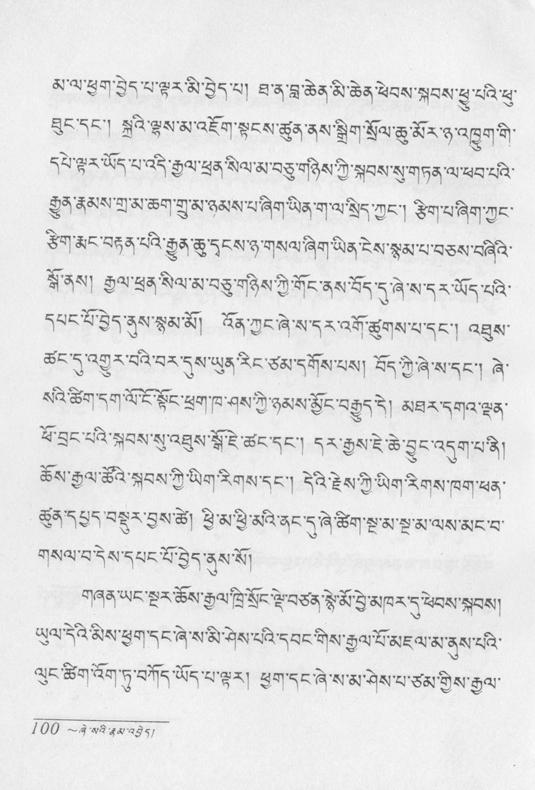 མ་ལ་ཕྱག་བྱེད་པ་ལྟར་མི་བྱེད་པ། ཐ་ན་བླ་ཆེན་མི་ཆེན་ཕེབས་སྐབས་ཕྱུ་པའི་ཕུ་
ཐུང་དང་། སྐྲའི་ལྷས་མ་འཇོག་སྟངས་ཚུན་ནས་སྒྲིག་སྲོལ་ཆུ་མོར་ཉ་འཁྱུག་གི་
དཔེ་ལྟར་ཡོད་པ་འདི་རྒྱལ་ཕྲན་སིལ་མ་བཅུ་གཉིས་ཀྱི་སྐབས་སུ་གཏན་ལ་ཕབ་པའི་
རྒྱུན་རྣམས་གྲ་མ་ཆག་གྲུ་མ་ཉམས་པ་ཞིག་ཡིན་ག་ལ་སྲིད་ཀྱང་། རྩིག་པ་ཞིག་ཀྱང་
རྩིག་རྨང་བརྟན་པའི་རྒྱུན་ཆུ་དྭངས་ཉ་གསལ་ཞིག་ཡིན་ངེས་སྙམ་པ་བཅས་བཞིའི་
སྒོ་ནས། རྒྱལ་ཕྲན་སིལ་མ་བཅུ་གཉིས་ཀྱི་གོང་ནས་བོད་དུ་ཞེ་ས་དར་ཡོད་པའི་
དཔང་པོ་བྱེད་ནུས་སྙམ་མོ། འོན་ཀྱང་ཞེ་ས་དར་འགོ་ཚུགས་པ་དང་། འཐུས་
ཚང་དུ་འགྱུར་བའི་བར་དུས་ཡུན་རིང་ཙམ་དགོས་པས། བོད་ཀྱི་ཞེ་ས་དང་། ཞེ་
སའི་ཚིག་དག་ལོ་ངོ་སྟོང་ཕྲག་ཁ་ཤས་ཀྱི་ཉམས་མྱོང་བརྒྱུད་དེ། མཐར་དགའ་ལྡན་
ཕོ་བྲང་པའི་སྐབས་སུ་འཐུས་སྒོ་ཇེ་ཚང་དང་། དར་རྒྱས་ཇེ་ཆེ་བྱུང་འདུག་པ་ནི།
ཆོས་རྒྱལ་ཚོའི་སྐབས་ཀྱི་ཡིག་རིགས་དང་། དེའི་རྗེས་ཀྱི་ཡིག་རིགས་ཁག་ཕན་
ཚུན་དཔྱད་བསྡུར་བྱས་ཚེ། ཕྱི་མ་ཕྱི་མའི་ནང་དུ་ཞེ་ཚིག་སྔ་མ་སྔ་མ་ལས་མང་བ་
གསལ་བ་དེས་དཔང་པོ་བྱེད་ནུས་སོ།
གཞན་ཡང་སྔར་ཆོས་རྒྱལ་ཁྲི་སྲོང་ལྡེ་བཙན་སྙེ་མོ་བྱེ་མཁར་དུ་ཕེབས་སྐབས།
ཡུལ་དེའི་མིས་ཕྱག་དང་ཞེ་ས་མི་ཤེས་པའི་དབང་གིས་རྒྱལ་པོ་མཇལ་མ་ནུས་པའི་
ལུང་ཚིག་འོག་ཏུ་བཀོད་ཡོད་པ་ལྟར། ཕྱག་དང་ཞེ་ས་མ་ཤེས་པ་ཙམ་གྱིས་རྒྱལ་
100 ~ཞེ་སའི་རྣམ་འབྱེད།